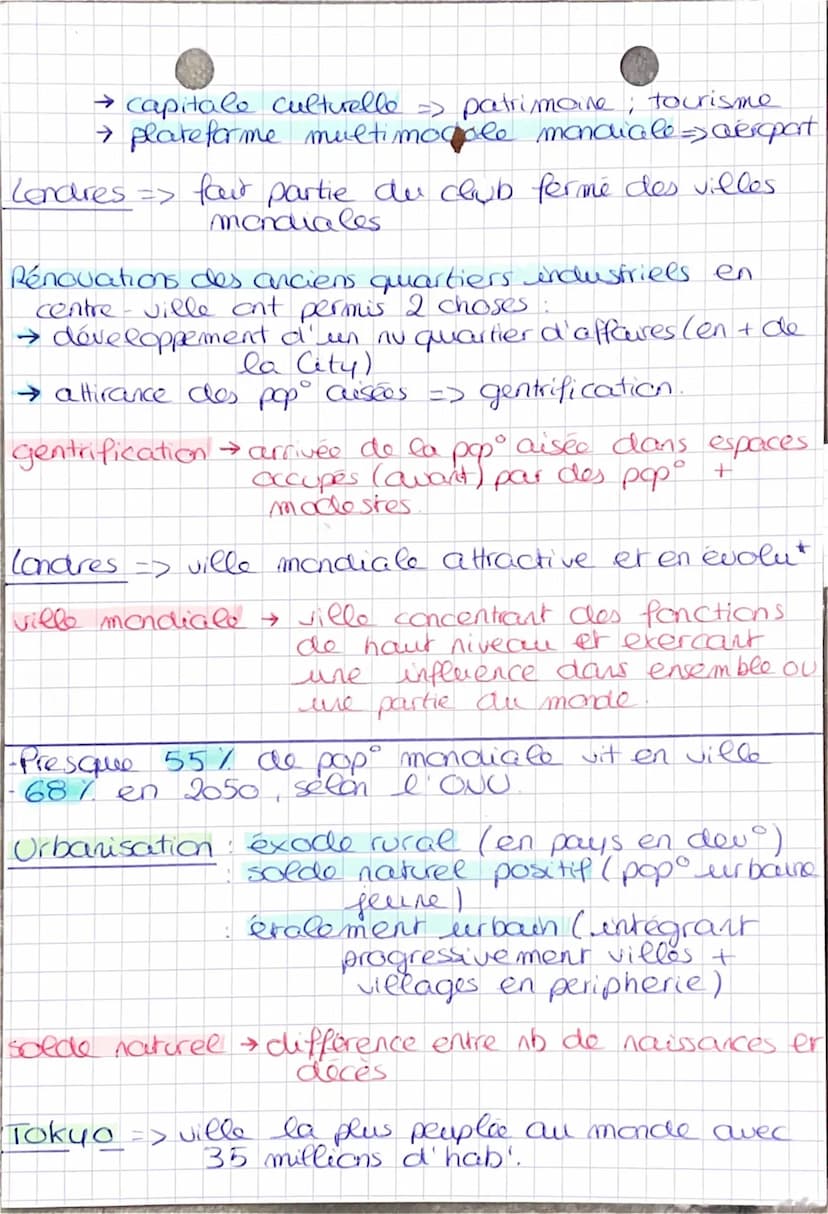 → capitale culturelle => patrimoine ; tourisme
→ plateforme multimodale mondiale => aéroport
Londres => fait partie du club fermé des villes
mondiales
Rénovations des anciens quartiers industriels en
centre-ville ont permis 2 choses :
→ développement d'un nv quartier d'affaires (en + de
la City)
→ attirance des pop° aisées => gentrification.
gentrification → arrivée de la pop° aisée dans espaces
occupés (avant) par des pop° +
modestes.
Londres => ville mondiale attractive et en évolu+
ville mondiale → ville concentrant des fonctions
de haut niveau et exercant
une influence dans ensemble ou
une partie du monde.
- Presque 55% de pop° mondiale vit en ville
- 68% en 2050, selon l'ONU.
Urbanisation : éxode rural (en pays en dev°)
: solde naturel positif (pop° urbaine
jeune)
: étalement urbain (intégrant
progressivement villes +
villages en peripherie)
solde naturel → différence entre nb de naissances et
décès
Tokyo => ville la plus peuplée au monde avec
35 millions d'hab'.